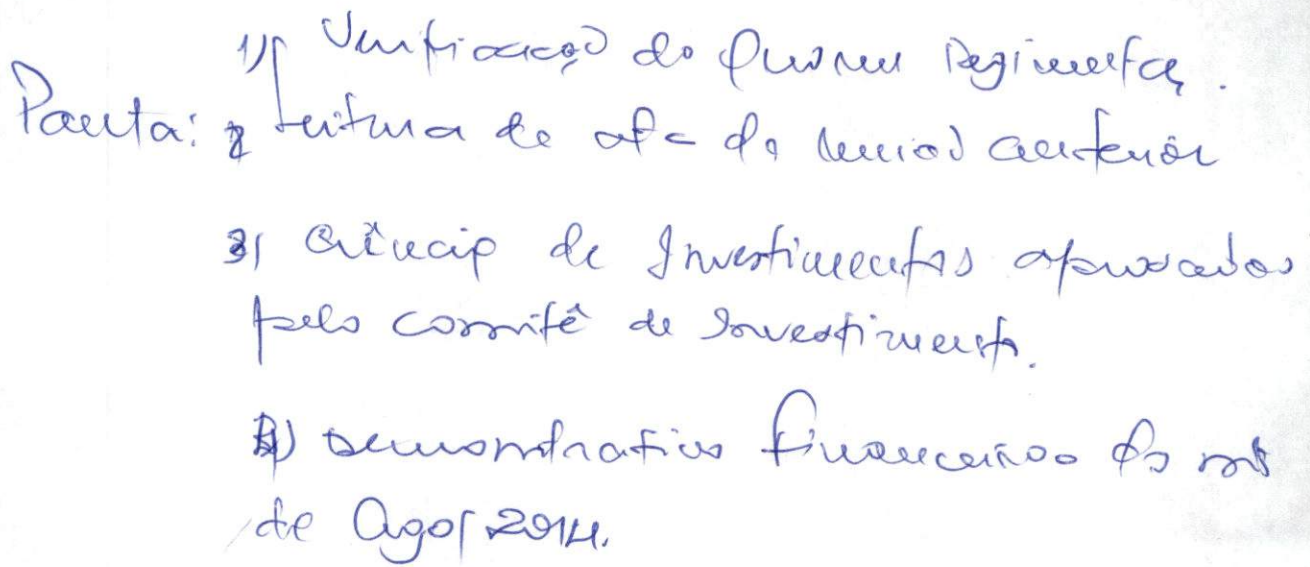 1) Verificação do Quorum Regimental.
Pauta: 2 Leitura da ata da reunião anterior
3) Ciência de Investimentos aprovados
pelo comitê de Investimento.
4) Demonstrativo financeiro do mês
de Ago/2014.